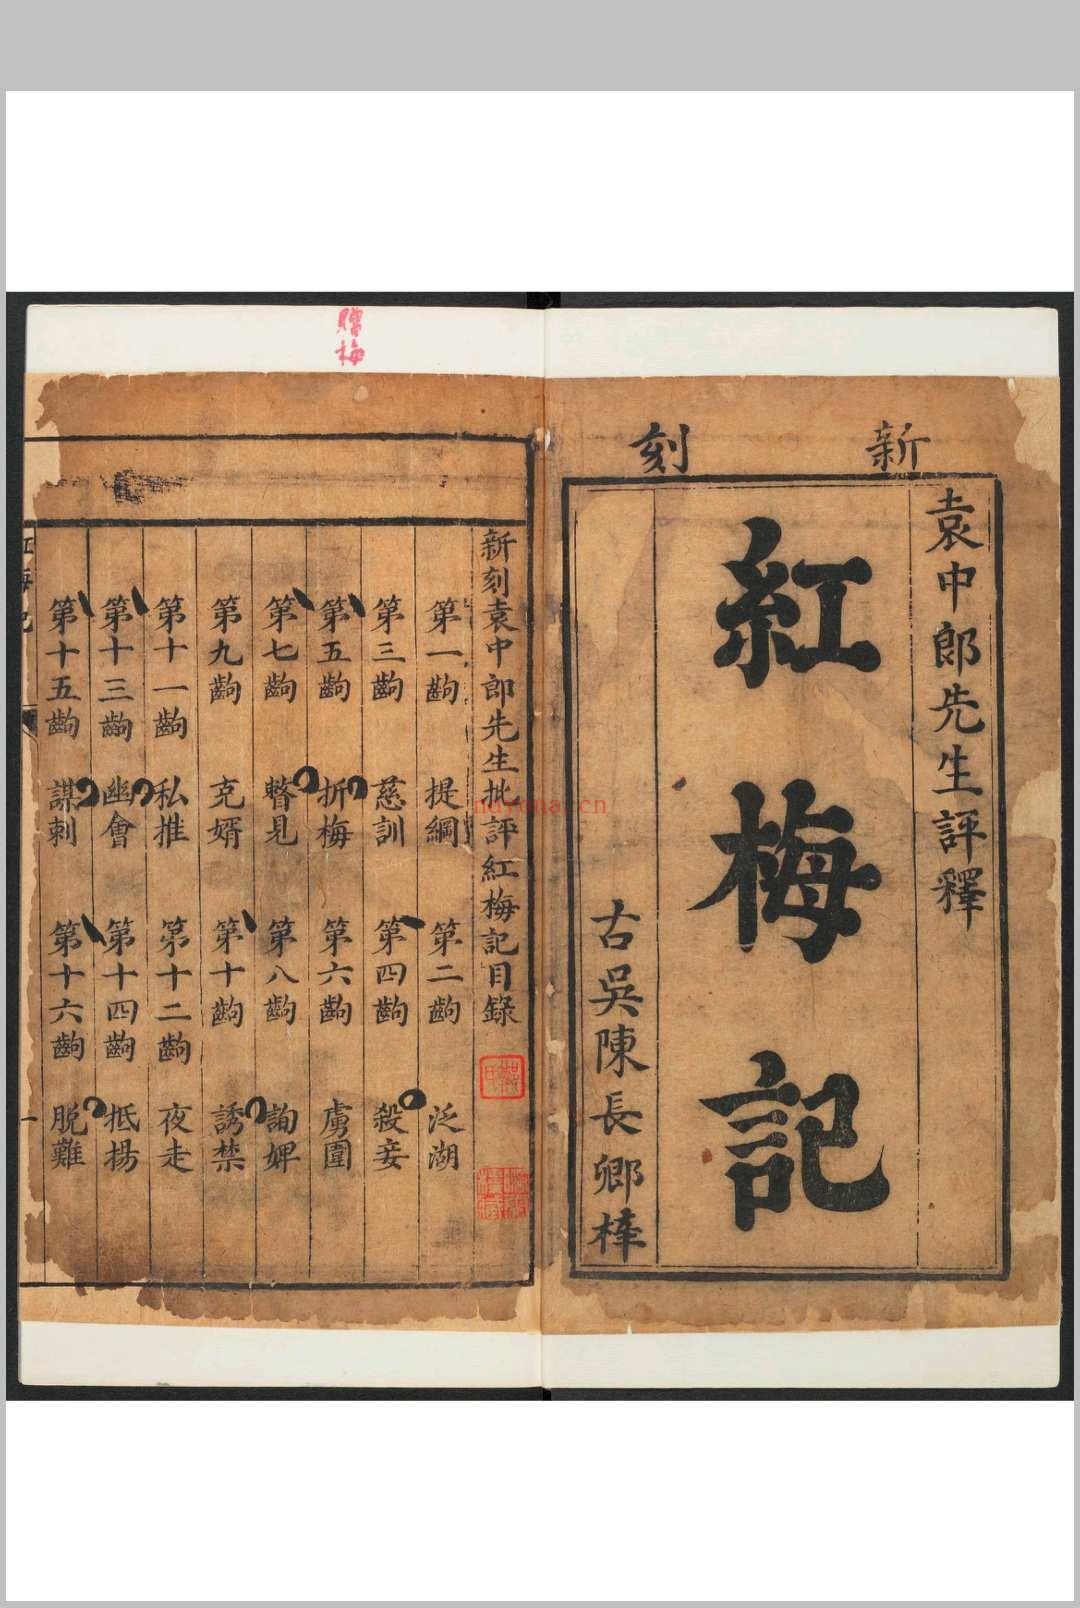 新刻
袁中郎先生評釋
紅梅記
古吳陳長卿梓
贈梅
新刻袁中郎先生批評紅梅記目錄
第一齣 提綱 第二齣 泛湖
第三齣 慈訓 第四齣 殺妾
第五齣 折梅 第六齣 虜圍
第七齣 瞥見 第八齣 詢婢
第九齣 克婿 第十齣 誘禁
第十一齣 私推 第十二齣 夜走
第十三齣 幽會 第十四齣 抵揚
第十五齣 謀刺 第十六齣 脫難
紅梅記
一
nayona.cn